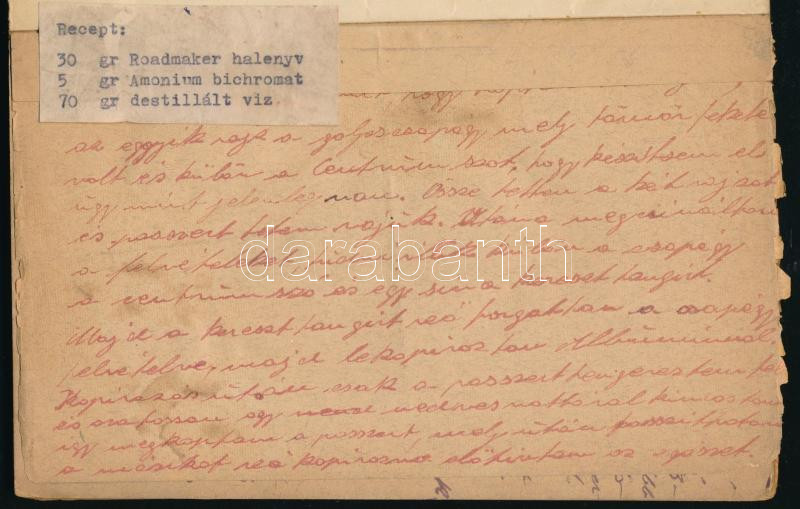 Recept:
30 gr Roadmaker halenyv
5 gr Amonium bichromat
70 gr destillált viz
hogy
az eggyik rajz a golyoscsapágy mely tömör fekete
volt és külön a Centrum szot, hogy készitsem el
úgy mint jelenleg van. Össze tettem a két rajzot
és passzert tettem rajuk. Utana megcsináltam
a felvételeket, külön a csapágy
a centrum szo és egy sima kereszt tangirt.
Majd a kereszt tangirt reá forgattam a csapágy
felvételre, majd lekopiroztam Albuminnal
Kopirozás után csak a passzert hengereztem be
és oroposan egy nedves vattával kimostam
igy megkaptam a passzert, mely után
a másikat reá kopirozva előhivtam az egészet.
darabanth